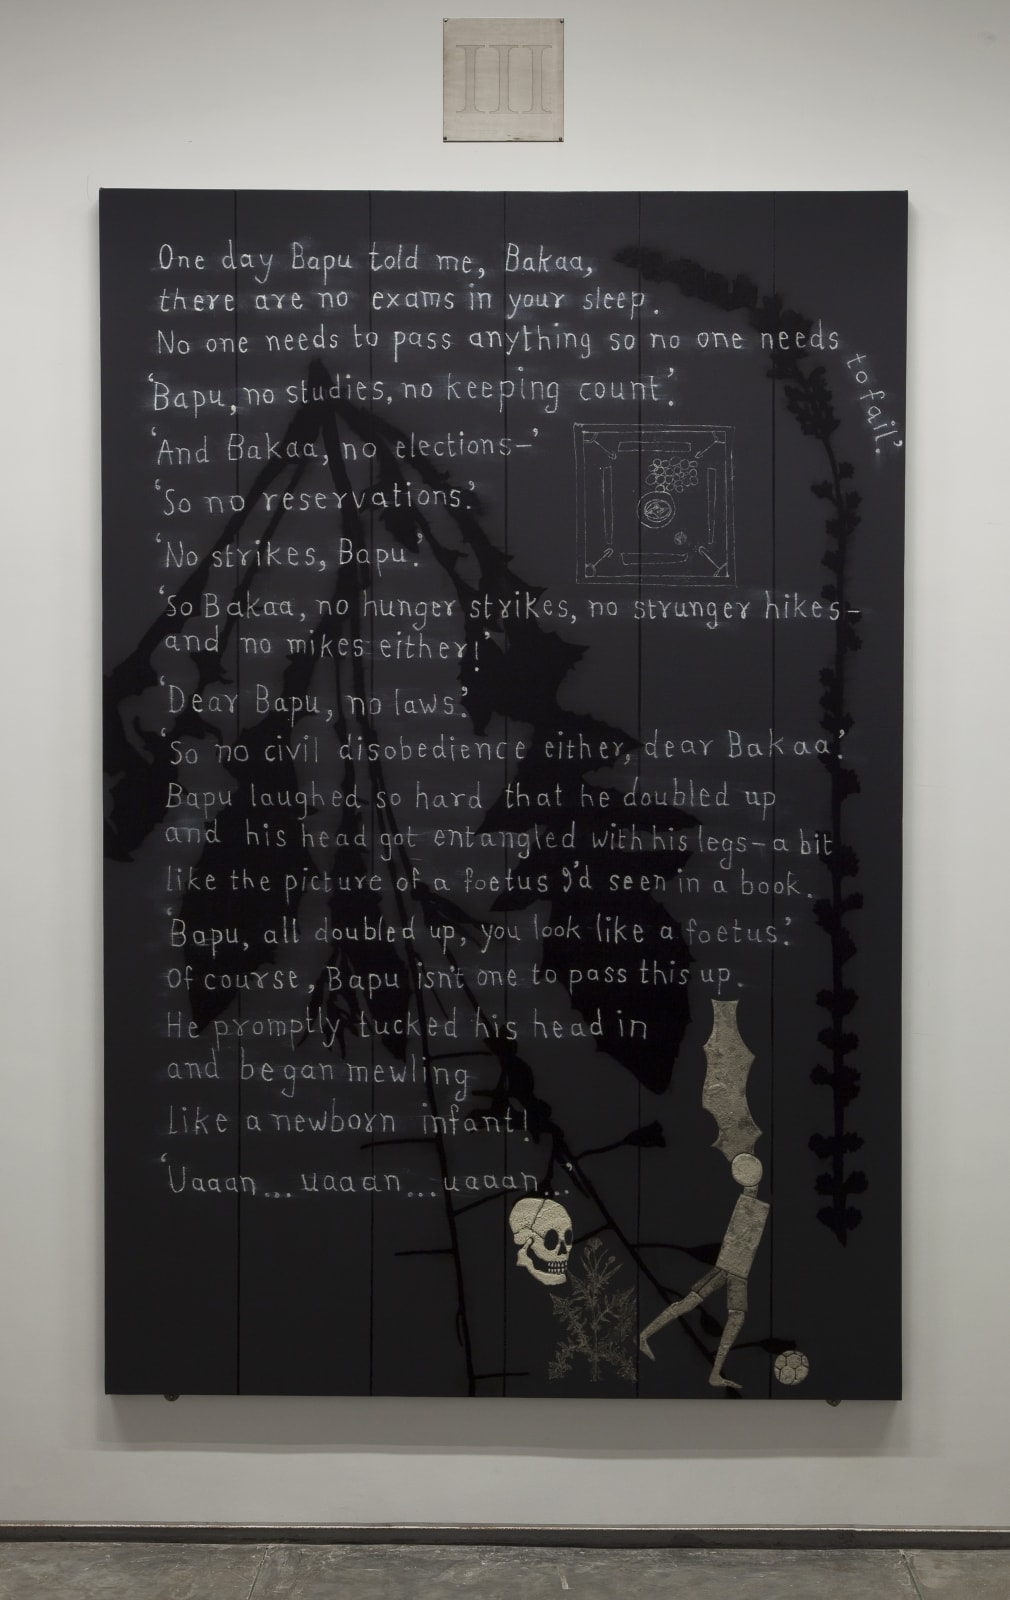 III
One day Bapu told me, Bakaa,
there are no exams in your sleep.
No one needs to pass anything so no one needs to fail'.
'Bapu, no studies, no keeping count'.
'And Bakaa, no elections—'
'So no reservations.'
'No strikes, Bapu.'
'So Bakaa, no hunger strikes, no strunger hikes—
and no mikes either!'
'Dear Bapu, no laws.'
'So no civil disobedience either, dear Bakaa'.
Bapu laughed so hard that he doubled up
and his head got entangled with his legs—a bit
like the picture of a foetus I'd seen in a book.
'Bapu, all doubled up, you look like a foetus.'
Of course, Bapu isn't one to pass this up.
He promptly tucked his head in
and began mewling
like a newborn infant!
'Uaaan... uaaan...uaaan...'